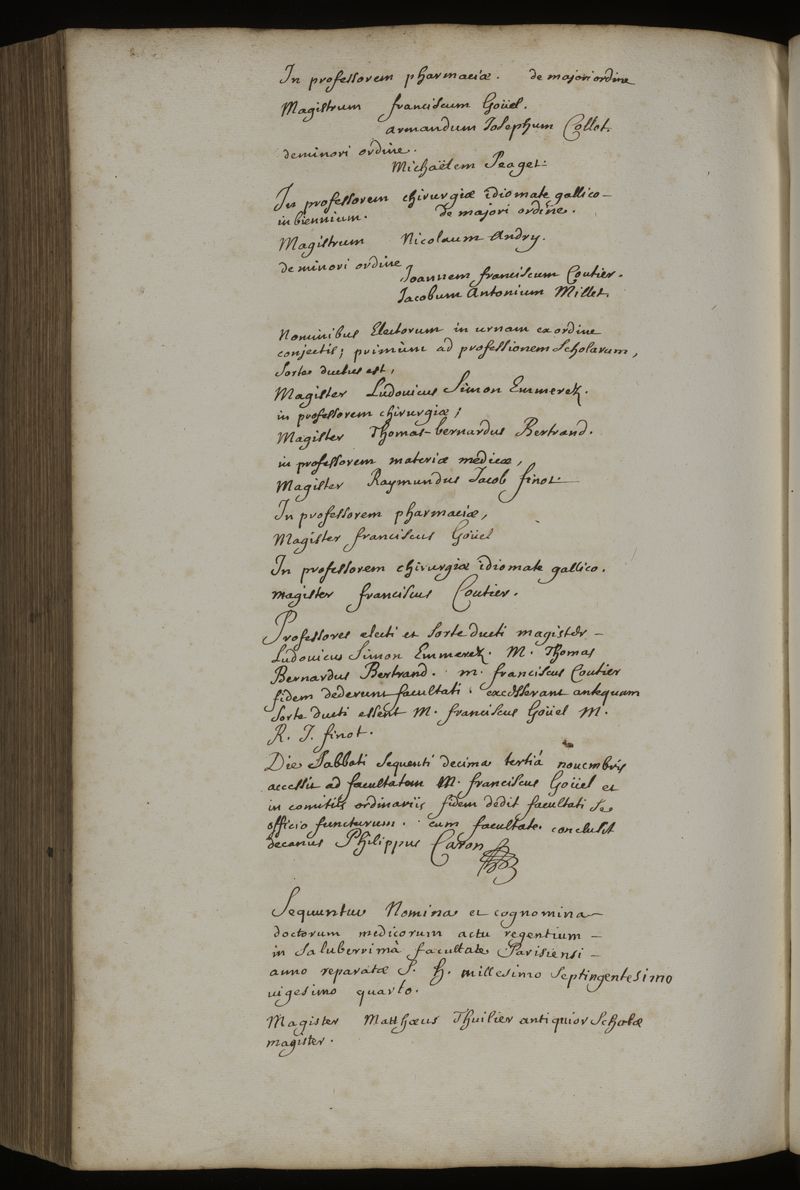 In professorem pharmaciæ. de majori ordine
Magistrum franciscum Goüel.
armandum Josephum Collot.
de minori ordine.
Michaëlem Peaget.
In professorem chirurgiæ idiomate gallico
in biennium. de majori ordine.
Magistrum Nicolaum Andry.
de minori ordine
Joannem franciscum Coutier.
Jacobum Antonium Millet.
Nominibus Electorum in urnam ex ordine
conjectis; primùm ad professionem scholarum,
sorte ductus est,
Magister Ludovicus Simon Emmerez.
in professorem chirurgiæ;
Magister Thomas-bernardus Bertrand.
in professorem materiæ medicæ,
Magister Raymundus Jacob finot.
In professorem pharmaciæ,
Magister franciscus Goüel
In professorem chirurgiæ idiomate gallico.
magister franciscus Coutier.
Professores electi et sorte ducti magister
Ludovicus Simon Emmerez. M. Thomas
Bernardus Bertrand. m. franciscus Coutier
fidem dederunt facultati. excesserant antequam
sorte ducti essent M. franciscus Goüel M.
R. J. finot.
Die Sabbati sequenti decima tertiâ novembris
accessit ad facultatem M. franciscus Goüel et
in comitiis ordinariis fidem dedit facultati se
officio functurum. cum facultate conclusit
decanus Philippus Caron
Sequuntur Nomina et cognomina
doctorum medicorum actu regentium
in saluberrimâ facultate Parisiensi
anno reparatæ S. H. millesimo septingentesimo
vigesimo quarto.
Magister Matthæus Thuilier antiquior Scholæ
magister.